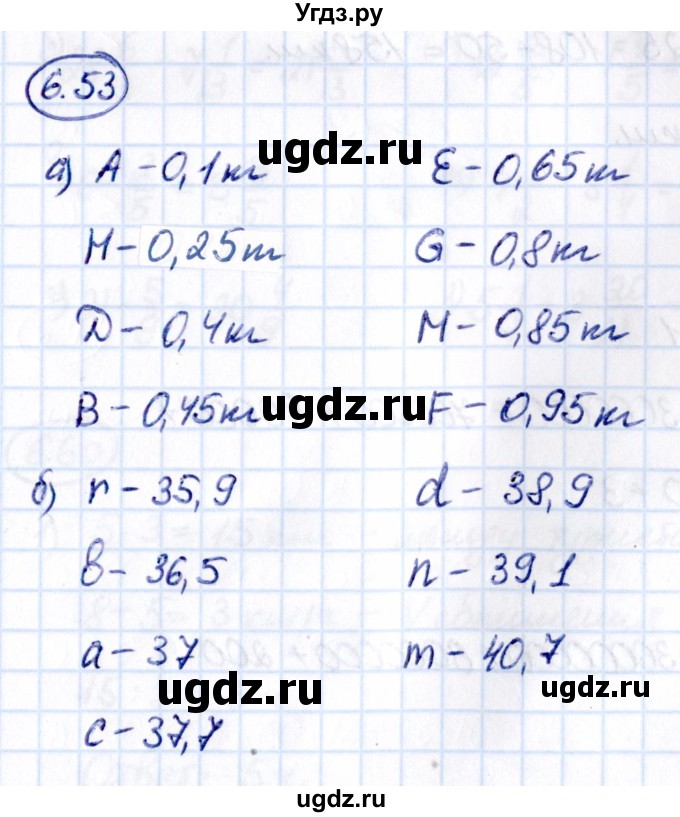 Угдз.ру
6.53
а) A - 0,1 т E - 0,65 т
H - 0,25 т G - 0,8 т
D - 0,4 т M - 0,85 т
B - 0,45 т F - 0,95 т
б) r - 35,9 d - 38,9
b - 36,5 n - 39,1
a - 37 m - 40,7
c - 37,7
ugdz.ru
ugdz.ru
ugdz.ru
ugdz.ru
ugdz.ru